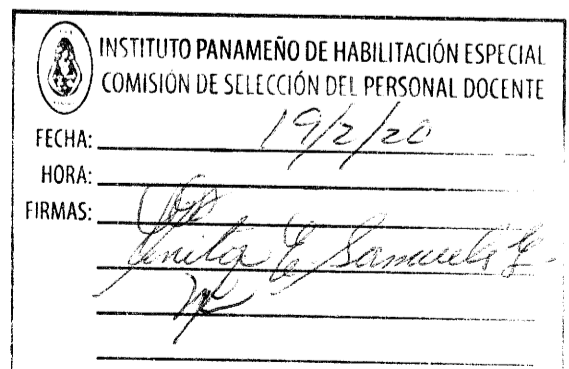 INSTITUTO PANAMEÑO DE HABILITACIÓN ESPECIAL
COMISIÓN DE SELECCIÓN DEL PERSONAL DOCENTE
FECHA: 19/2/20
HORA:
FIRMAS:
E Samuels G